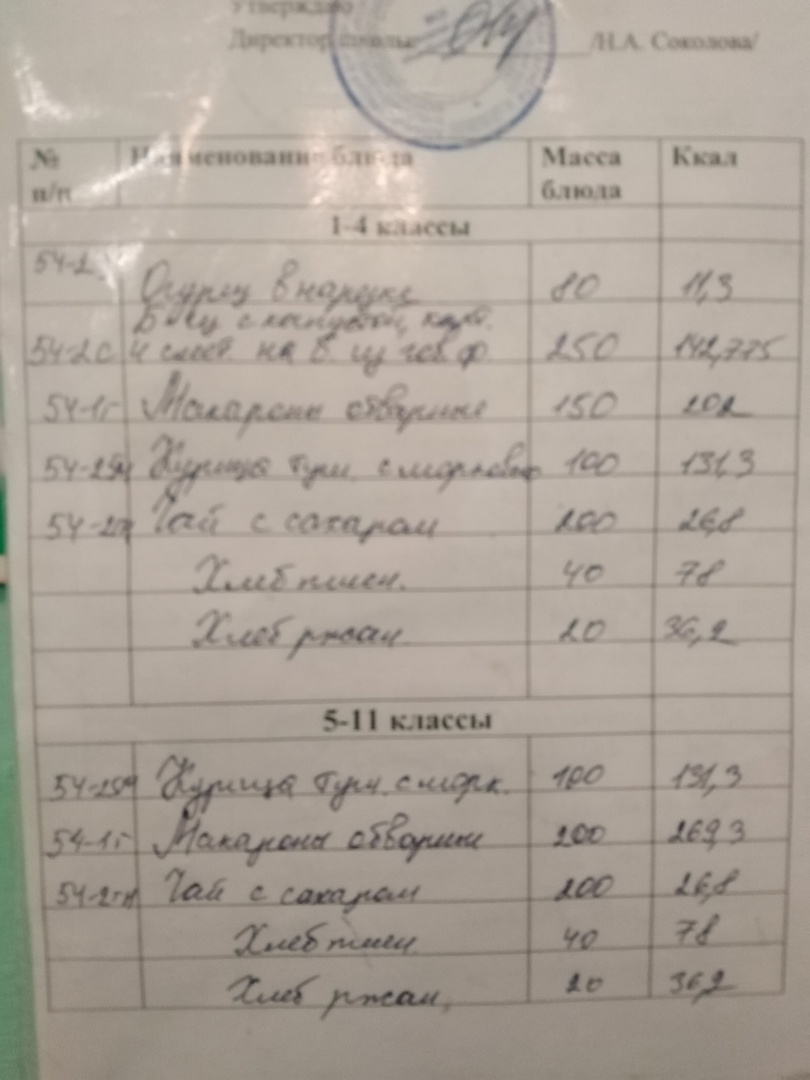 Утверждаю
Директор школы /Н.А. Соколова/
№ п/п Наименование блюда Масса блюда Ккал
1-4 классы
54-2 Огурец в нарезке 80 11,3
Борщ с капустой, карт.
54-2с и смет. на б. из 250 142,775
54-1г Макароны отварные 150 202
54-25м Курица туш. с морковью 100 131,3
54-2гн Чай с сахаром 200 26,8
Хлеб пшен. 40 78
Хлеб ржан. 20 36,2
5-11 классы
54-25м Курица туш. с морк. 100 131,3
54-1г Макароны отварные 200 269,3
54-2гн Чай с сахаром 200 26,8
Хлеб пшен. 40 78
Хлеб ржан. 20 36,2